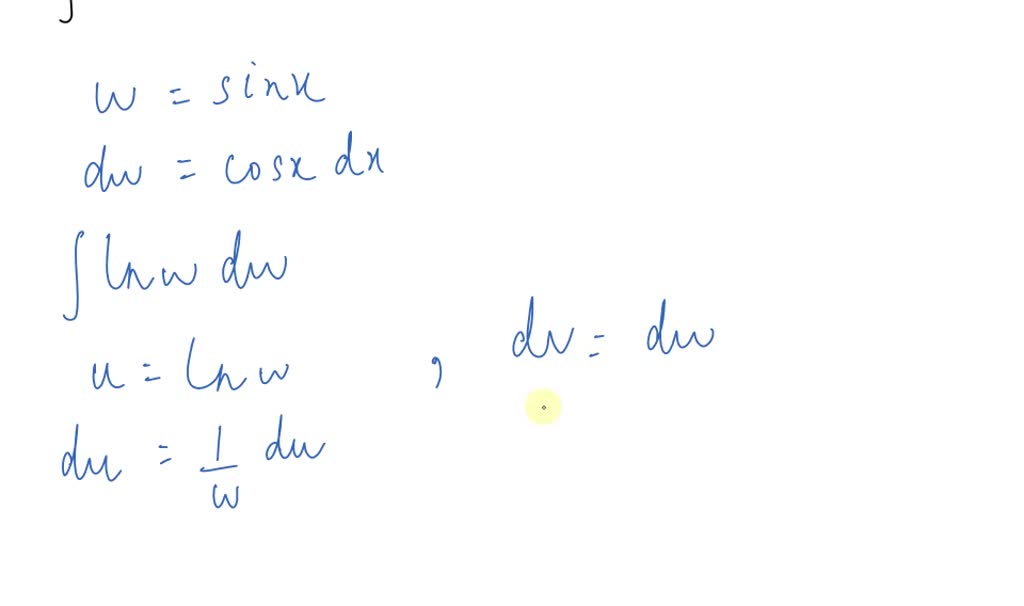 ∫
w = sinx
dw = cosx dx
∫ ln w dw
u = ln w , dv = dw
du = 1/w dw